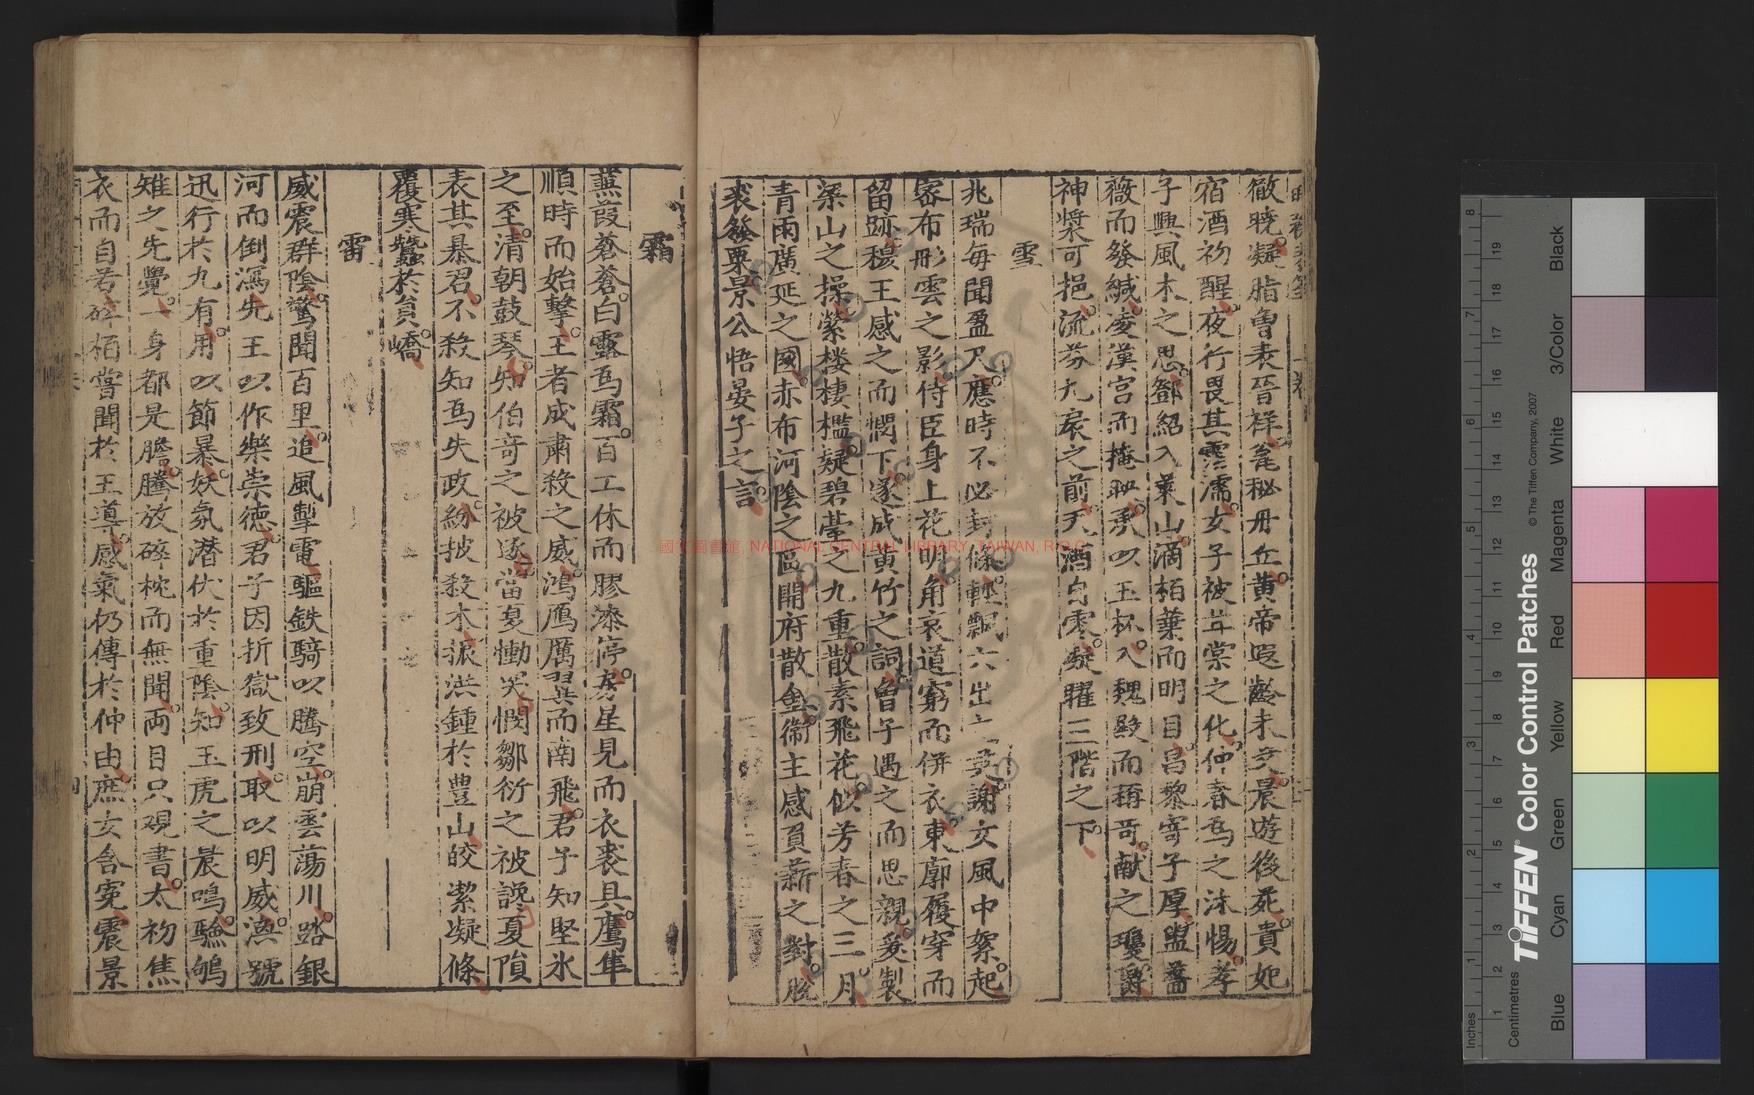 徹曉凝脂魯表晉祥瓮秘丹丘黃帝晨遊後死貴妃
宿酒初醒夜行畏其霑濡女子被之化仲春為之沐惕孝
子興風木之思鄧紹入葉山滴栢葉而明目昌黎寄子厚盥薔
薇而發緘凌漢宮而掩承以玉杯入魏殿而稱哥獻之瓊爵
神漿可挹流芬九之前天酒自零凝躍三階之下
雪
兆瑞每聞盈尺應時不必封條輕飄六出謝女風中絮起
密布彤雲之影侍臣身上花明角哀道窮而併衣東廓履穿而
留跡穆王感之而憫下遂成黃竹之詞曾子遇之而思親爰製
梁山之操縈樓棲檻疑碧之九重散素飛花似芳春之三月
青雨廣延之國赤布河陰之區開府散金衛主感負薪之對脫
裘發粟景公悟晏子之言
霜
蒹葭蒼蒼白露為霜百工休而膠漆停房星見而衣裘具鷹隼
順時而始擊王者成肅殺之威鴻鴈厲翼而南飛君子知堅氷
之至清朝鼓琴知伯奇之被逐當夏慟哭憫鄒衍之被讒夏隕
表其暴君不殺知為失政紛披殺木振洪鍾於豊山皎潔凝條
覆寒蠶於員嶠
雷
威震群陰驚聞百里追風掣電驅鉄騎以騰空崩雲蕩川踏銀
河而倒瀉先王以作樂崇德君子因折獄致刑取以明威渙號
迅行於九有用以節暴妖氛潛伏於重陰知玉虎之晨鳴驗鴝
雉之先覺一身都是膽騰放碎枕而無聞兩目只覌書太初焦
衣而自若碎栢嘗聞於王導感氣仍傳於仲由庶女含寃震景